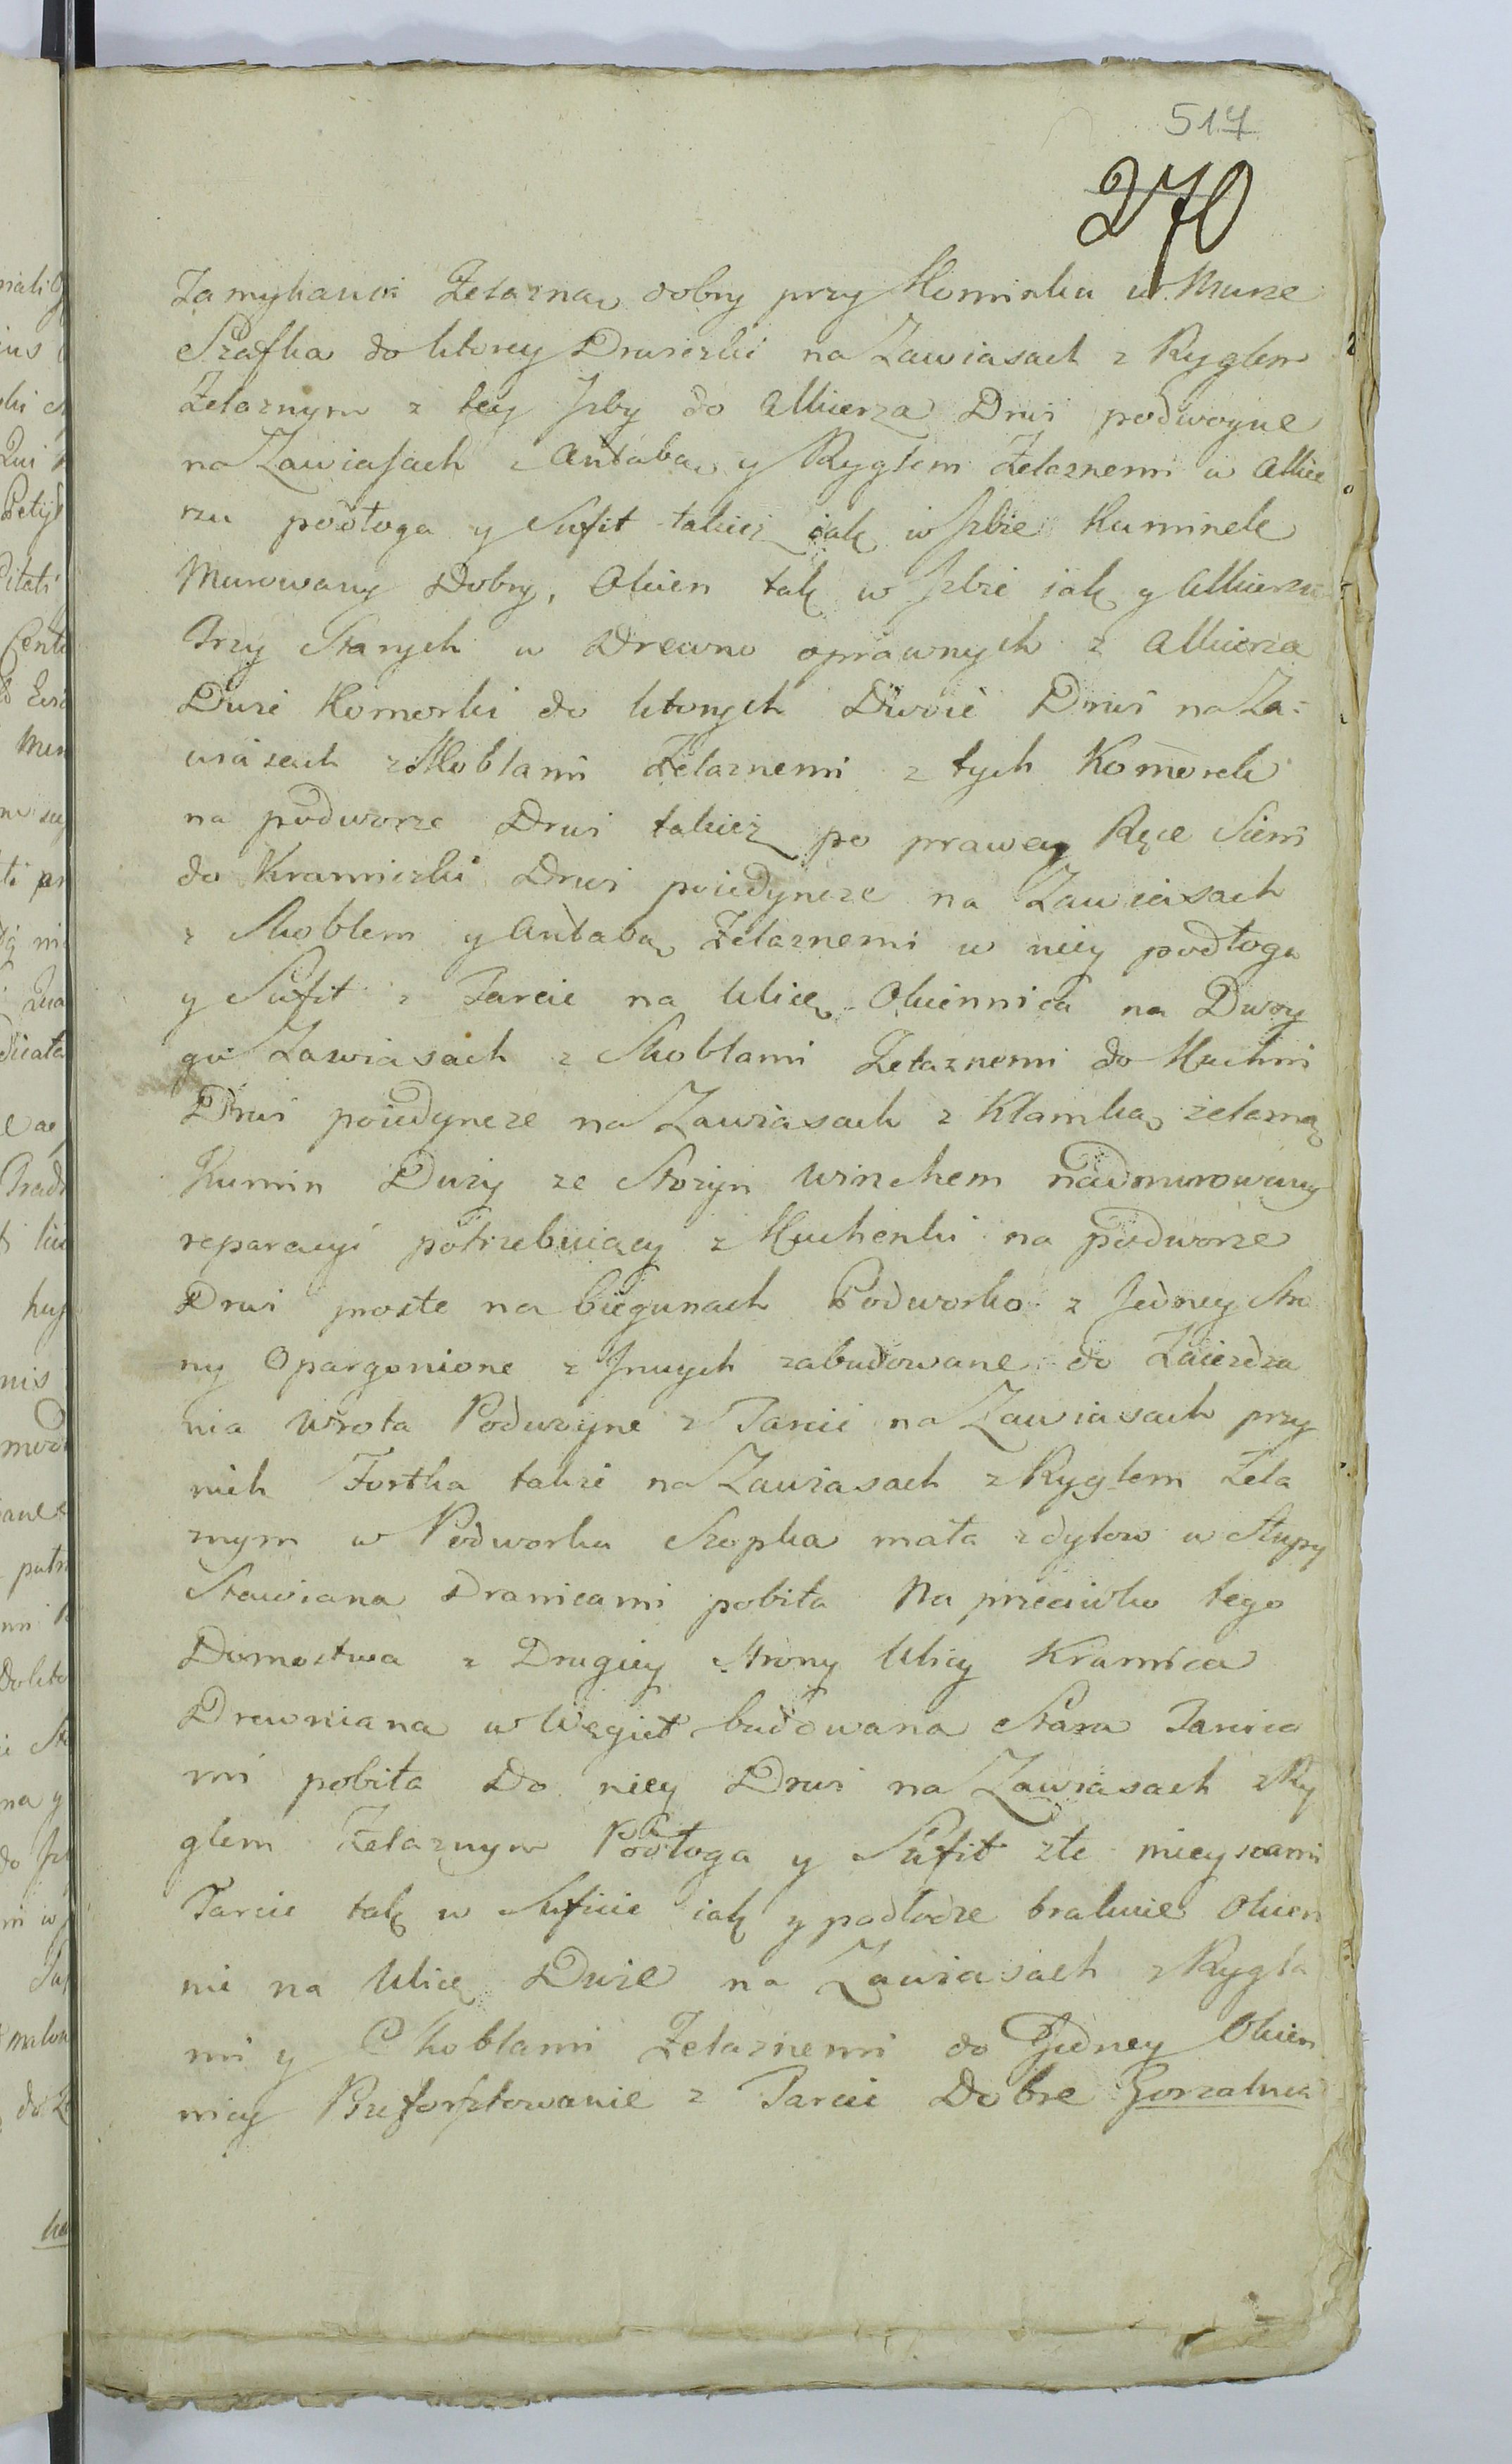 517
270
Zamykania Zelazna dobry przy Kominku w Murze
Szafka do ktorey Drwiczki na Zawiasach z Ryglem
Zelaznym z tey Jzby do Alkierza Drwi podwoyne
na Zawiasach z Antabą y Ryglem Zelaznemi w Alkie
rzu podłoga y Sufit takiż iak w Jzbie Kuminek
Murowany Dobry, Okien tak w Jzbie iak y Alkierzu
Trzy Starych w Drewno oprawnych z Alkierza
Dwie Komorki do ktorych Dwoie Drwi na Za=
wiasach z Skoblami Zelaznemi z tych Komorek
na podworze Drwi takież po prawey Ręce Sieni
do Kramiczki Drwi poiedyncze na Zawiasach
z Skoblem y Antabą Zelaznemi w niey podłoga
y Sufit z Tarcic na Ulicę Okiennica na Dwoy
gu Zawiasach z Skoblami Zelaznemi do Kuchni
Drwi poiedyncze na Zawiasach z Klamką zelazną
Kumin Duży ze Stożyn Wirzchem nadmurowany
reparacyi potrzebuiący z Kuchenki na podworze
Drwi proste na biegunach Podworko z Jedney Stro
ny Oparganione z Jnnych zabudowane do Zaiezdza
nia Wrota Podwoyne z Tarcic na Zawiasach przy
nich Fortka takze na Zawiasach z Ryglem Zela
znym w Podworku Szopka mała z dylow w Słupy
Stawiana Dranicami pobita Na przeciwko tego
Domostwa z Drugiey Strony Ulicy Kramica
Drewniana w Węgieł budowana Stara Tarcica
mi pobita Do niey Drwi na Zawiasach z Ry
glem Zelaznym Podłoga y Sufit złe mieyscami
Tarcic tak w Suficie iak y podłodze brakuie Okien
nic na Ulicę Dwie na Zawiasach z Rygla
mi y Skoblami Zelaznemi do Jedney Okien
nicy Przeforsztowanie z Tarcic Dobre Gorzalnia